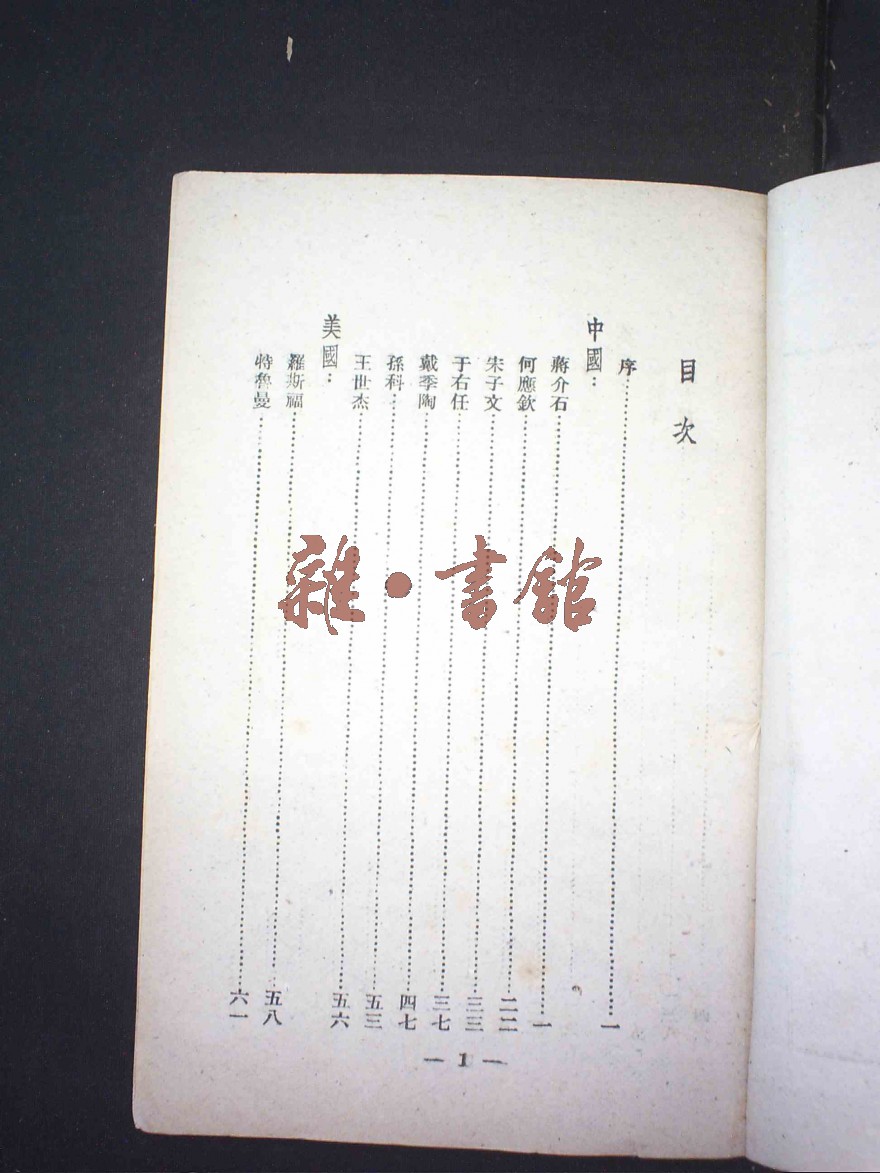 目次
序……一
中國：
蔣介石……一
何應欽……二二
宋子文……三三
于右任……三七
戴季陶……四七
孫科……五三
王世杰……五六
美國：
羅斯福……五八
特魯曼……六一
— 1 —
雜·書舘